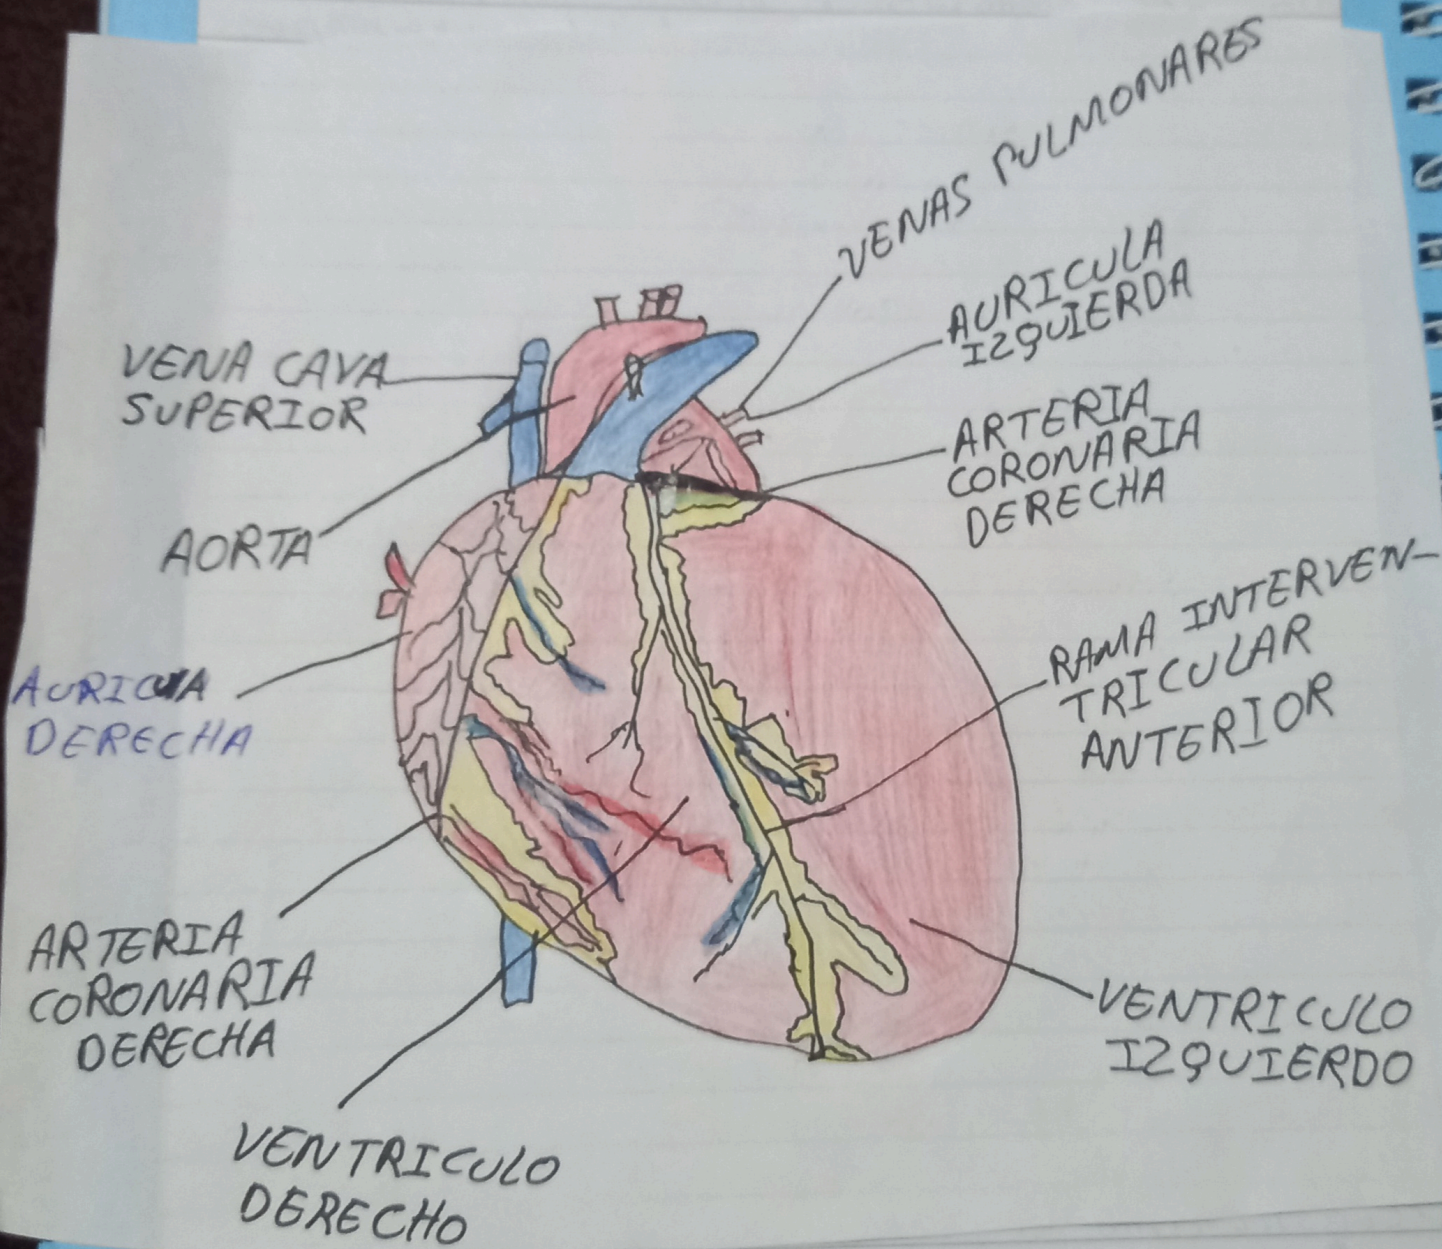 VENAS PULMONARES
AURICULA
IZQUIERDA
VENA CAVA
SUPERIOR
ARTERIA
CORONARIA
DERECHA
AORTA
RAMA INTERVEN-
TRICULAR
ANTERIOR
AURICULA
DERECHA
ARTERIA
CORONARIA
DERECHA
VENTRICULO
IZQUIERDO
VENTRICULO
DERECHO